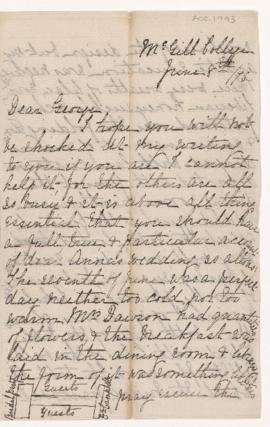 ACC. 1943
McGill College
June 8th /75
Dear George
I hope you will not
be shocked at my writing
to you if you are I cannot
help it for the others are all
so busy & it is above all things
essential that you should have
a full true & particular account
of dear Anna's wedding, so allons!
The seventh of June was a perfect
day neither too cold not too
warm, Mrs Dawson had quantities
of flowers, & the breakfast was
laid in the dining room &
the form of it was something
Guests
Guests
pray excuse the